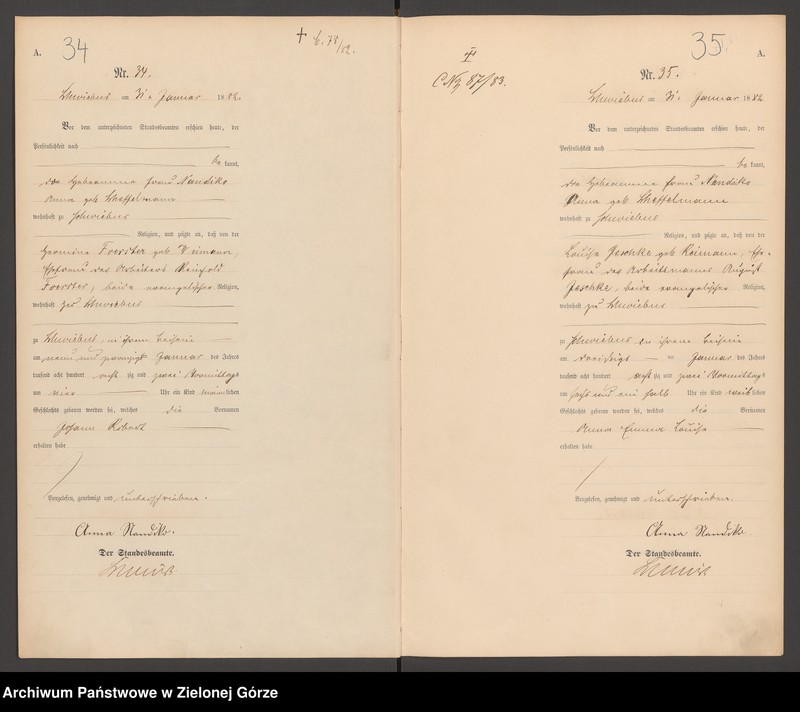 A. 34
✝ C. 78/82.
Nr. 34.
Schwiebus am 31. Januar 1882.
Vor dem unterzeichneten Standesbeamten erschien heute, der
Persönlichkeit nach
be kannt,
die Hebeamme Frau Nandike
Anna geb. Scheffelmann
wohnhaft zu Schwiebus
Religion, und zeigte an, daß von der
Hermine Foerster geb.
Ehefrau des Arbeiters Reinhold
Foerster, beide evangelischer Religion,
wohnhaft zu Schwiebus
zu Schwiebus, in ihrem Beisein
am neun und zwanzigst Januar des Jahres
tausend acht hundert acht zig und zwei Vormittags
um Uhr ein Kind männ lichen
Geschlechts geboren worden sei, welches die Vornamen
Johann Robert
erhalten habe
Vorgelesen, genehmigt und unterschrieben.
Anna Nandike.
Der Standesbeamte.
35. A.
✝
C No 87/83.
Nr. 35.
Schwiebus am 31. Januar 1882
Vor dem unterzeichneten Standesbeamten erschien heute, der
Persönlichkeit nach
be kannt,
die Hebeamme Frau Nandike
Anna geb Scheffelmann
wohnhaft zu Schwiebus
Religion, und zeigte an, daß von der
Louise Jeschke geb Reimann, Ehe-
frau des Arbeitsmanns August
Jeschke, beide evangelischer Religion,
wohnhaft zu Schwiebus
zu Schwiebus in ihrem Beisein
am dreißigst Januar des Jahres
tausend acht hundert acht zig und zwei Vormittags
um sechs und ein halb Uhr ein Kind weib lichen
Geschlechts geboren worden sei, welches die Vornamen
Anna Emma Louise
erhalten habe
Vorgelesen, genehmigt und unterschrieben.
Anna Nandike
Der Standesbeamte.
Archiwum Państwowe w Zielonej Górze